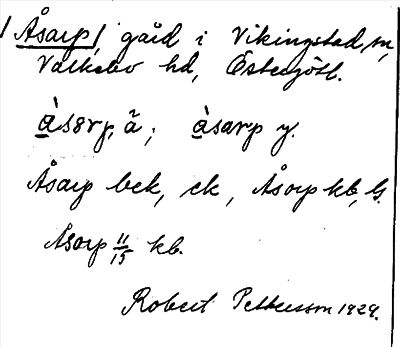 Åsarp, gård i Vikingstad, sn,
Valkebo hd, Östergötl.
àsarp y.
Åsarp bek, ek, Åsorp kb, G.
Åsorp 11/15 kb.
Robert Pettersson 1929.